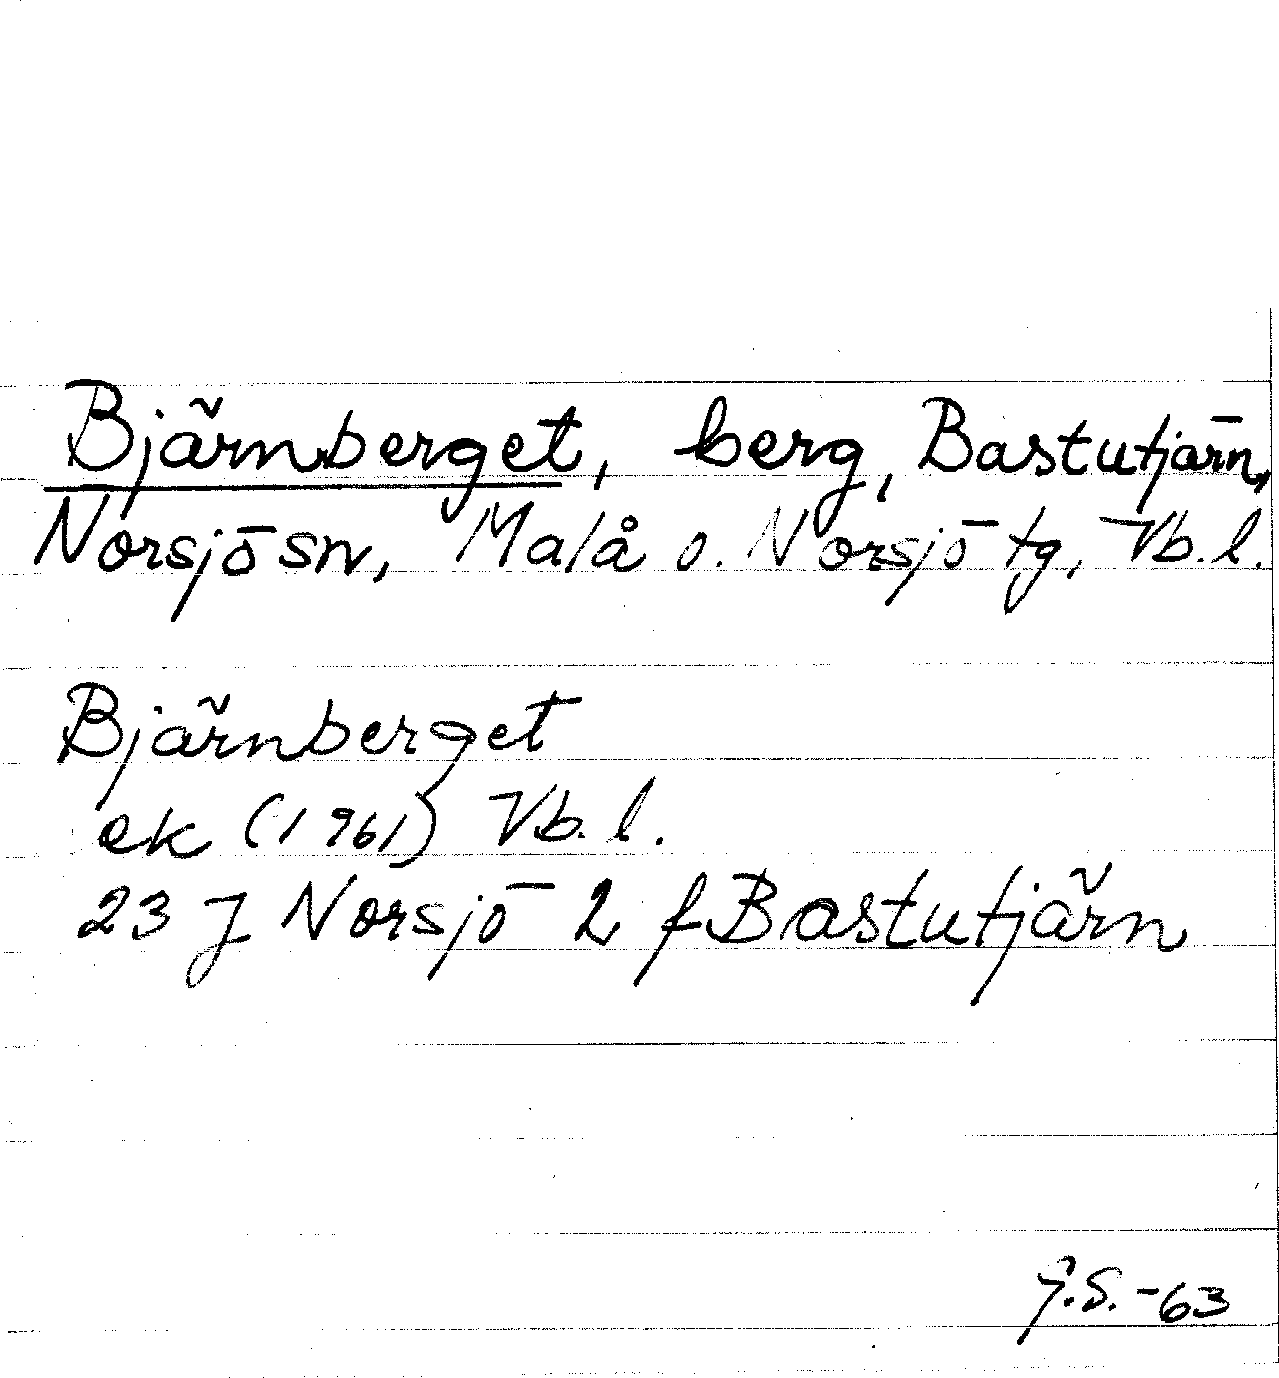 Bjärnberget, berg, Bastutjärn,
Norsjö sn, Malå o. Norsjö tg, Vb. l.
Bjärnberget
ek (1961) Vb. l.
23 J Norsjö 2 f Bastutjärn
G.S. -63